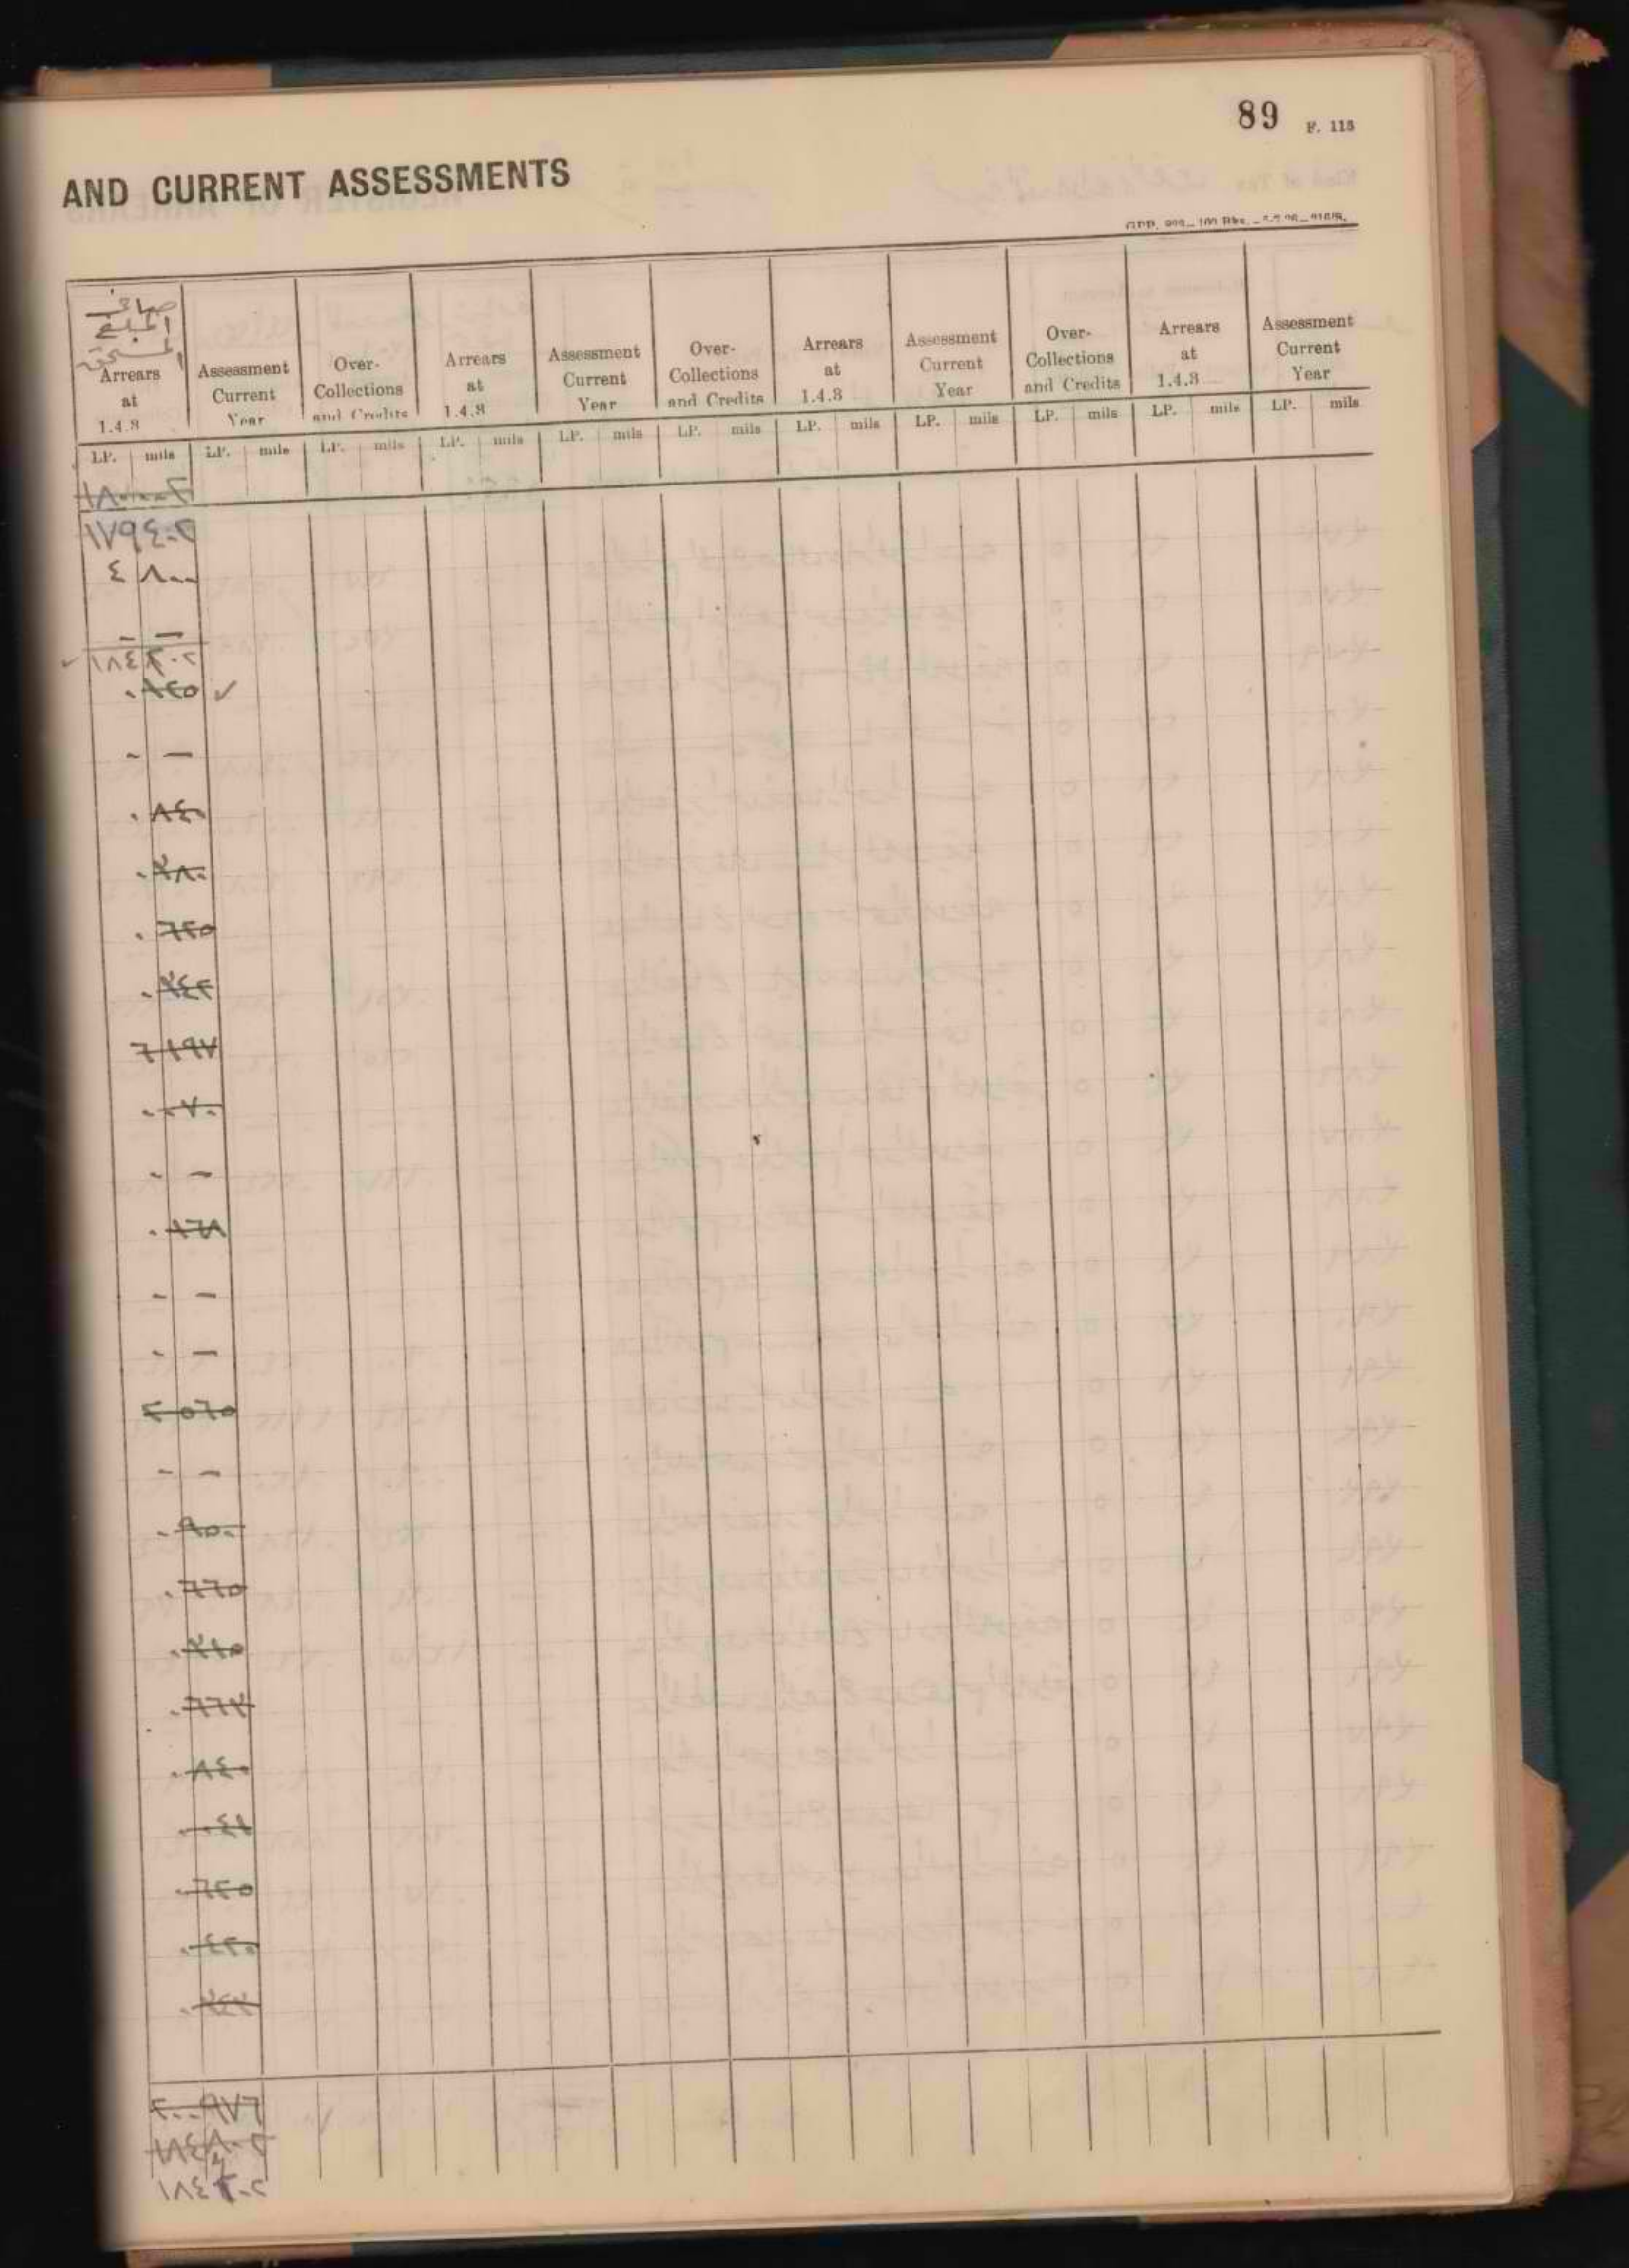 89 F. 113
AND CURRENT ASSESSMENTS
صافي
المبلغ
Arrears at 1.4.3 Assessment Current Year Over-Collections and Credits Arrears at 1.4.3 Assessment Current Year Over-Collections and Credits Arrears at 1.4.3 Assessment Current Year Over-Collections and Credits Arrears at 1.4.3 Assessment Current Year
LP. mils LP. mils LP. mils LP. mils LP. mils LP. mils LP. mils LP. mils LP. mils LP. mils LP. mils
١٧٩٤٠٢
٤ ٨٠٠
- —
١٨٤٢٠٢
٠ ٨٢٥
- —
٠ ٨٤٠
٠ ٢٨٠
٠ ٦٢٥
٠ ٢٤٢
٦ ١٩٧
٠ ٠٧٠
- —
٠ ١٦٨
- —
- —
٢ ٥٦٥
- —
٠ ٩٥٠
٠ ٦٦٥
٠ ٢١٥
٠ ٦٦٧
٠ ٨٤٠
٠ ٠٤١
٠ ٦٢٥
٠ ٤٢٠
٢٠٠٩٧٦
١٨٤٨٠٢
١٨٤٢٠٢